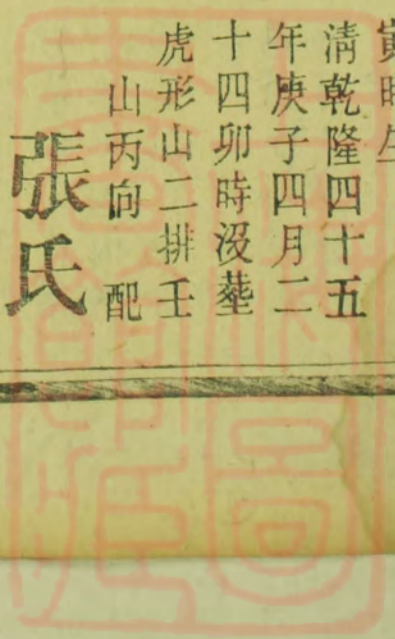 寅時生
清乾隆四十五
年庚子四月二
十四卯時沒塟
虎形山二排壬
山丙向 配
張氏